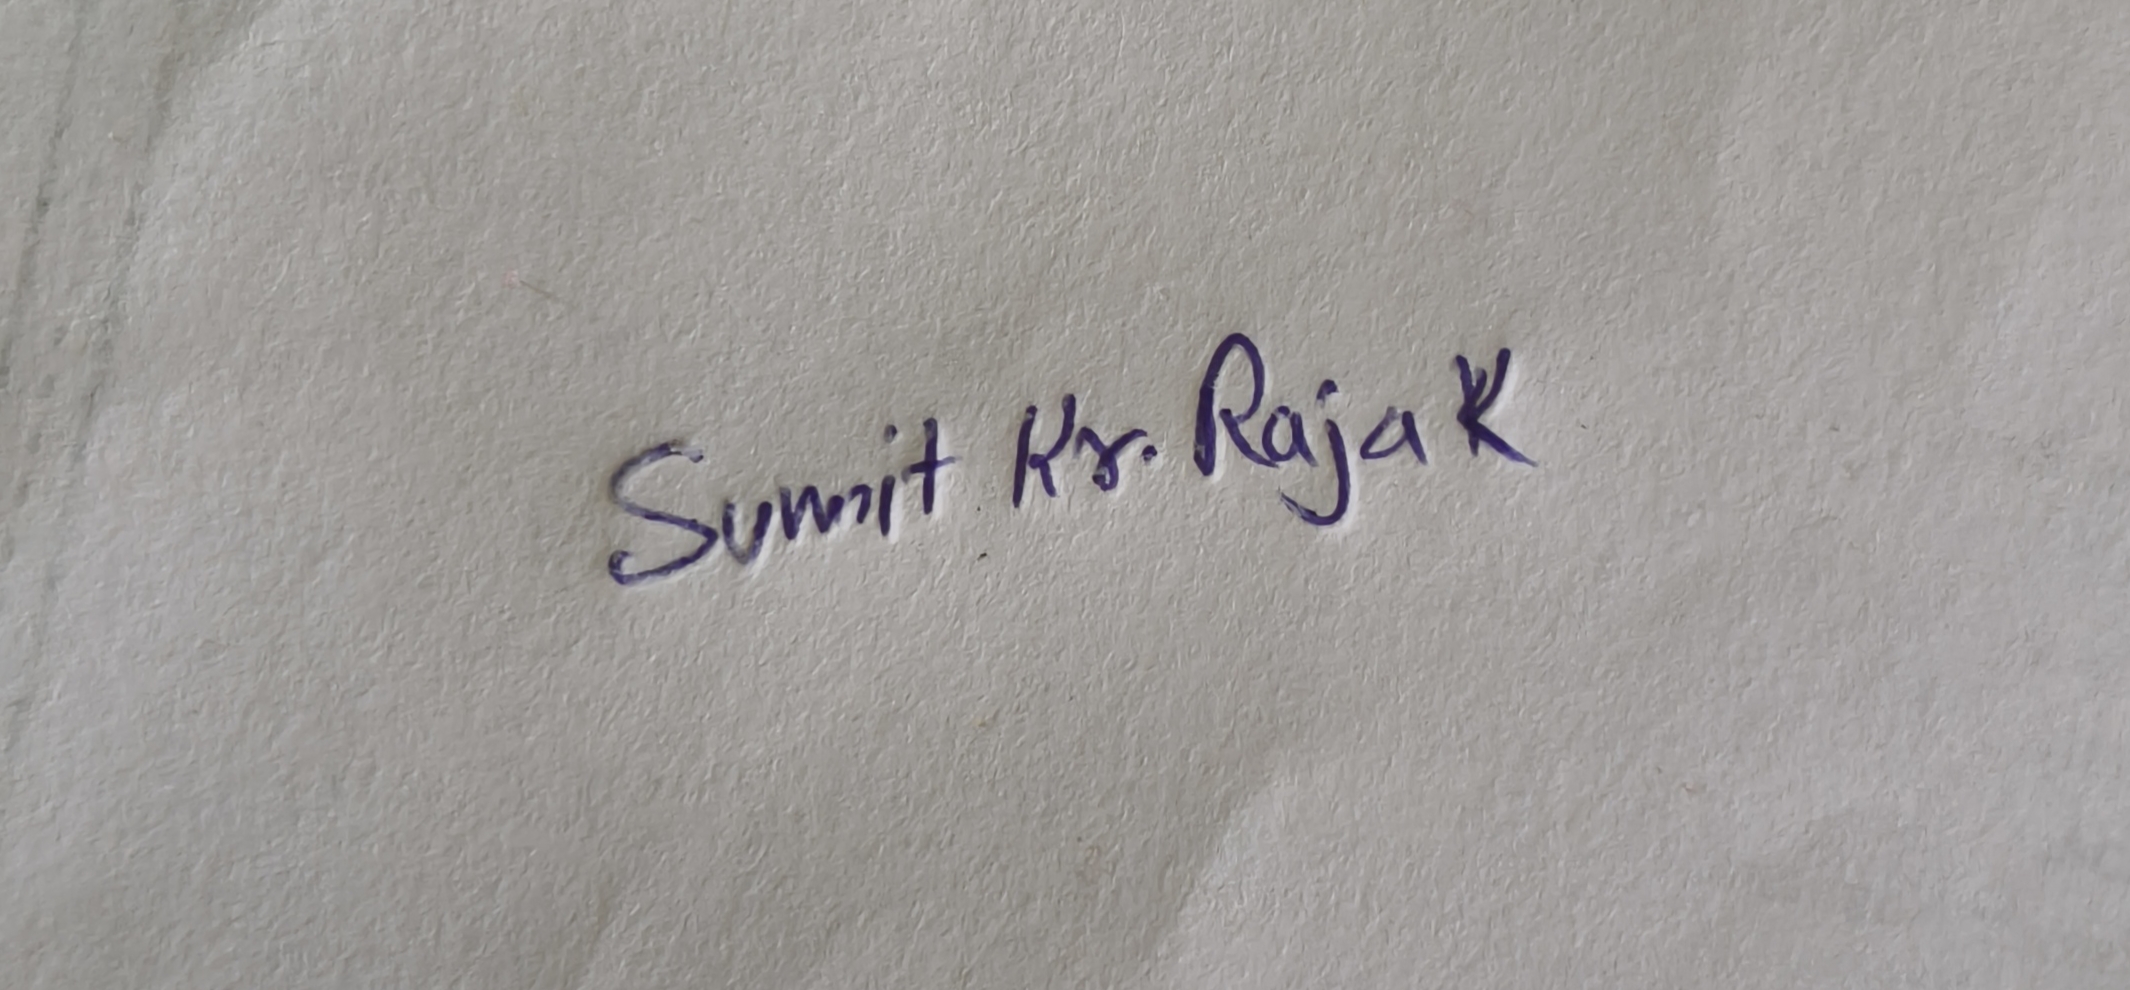 Sumit Kr. Rajak